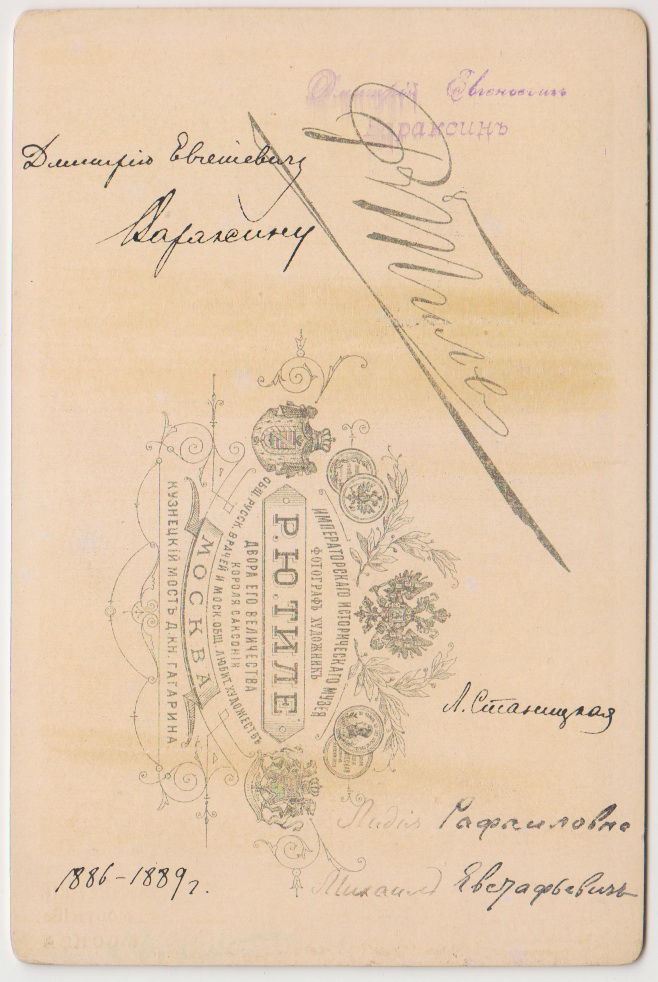 Дмитрій Евгеніевичъ
Вараксинъ
Дмитрію Евгеніевичу
Вараксину
Р Тиле
ИМПЕРАТОРСКАГО ИСТОРИЧЕСКАГО МУЗЕЯ
ФОТОГРАФЪ ХУДОЖНИКЪ
Р.Ю.ТИЛЕ
ДВОРА ЕГО ВЕЛИЧЕСТВА
КОРОЛЯ САКСОНІИ
ОБЩ. РУССК. ВРАЧЕЙ И МОСК. ОБЩ. ЛЮБИТ. ХУДОЖЕСТВЪ
МОСКВА
КУЗНЕЦКІЙ МОСТЪ Д. КН. ГАГАРИНА
Л. Станицкая
Лидія Рафаиловна
Михаилъ Евстафьевичъ
1886-1889 г.